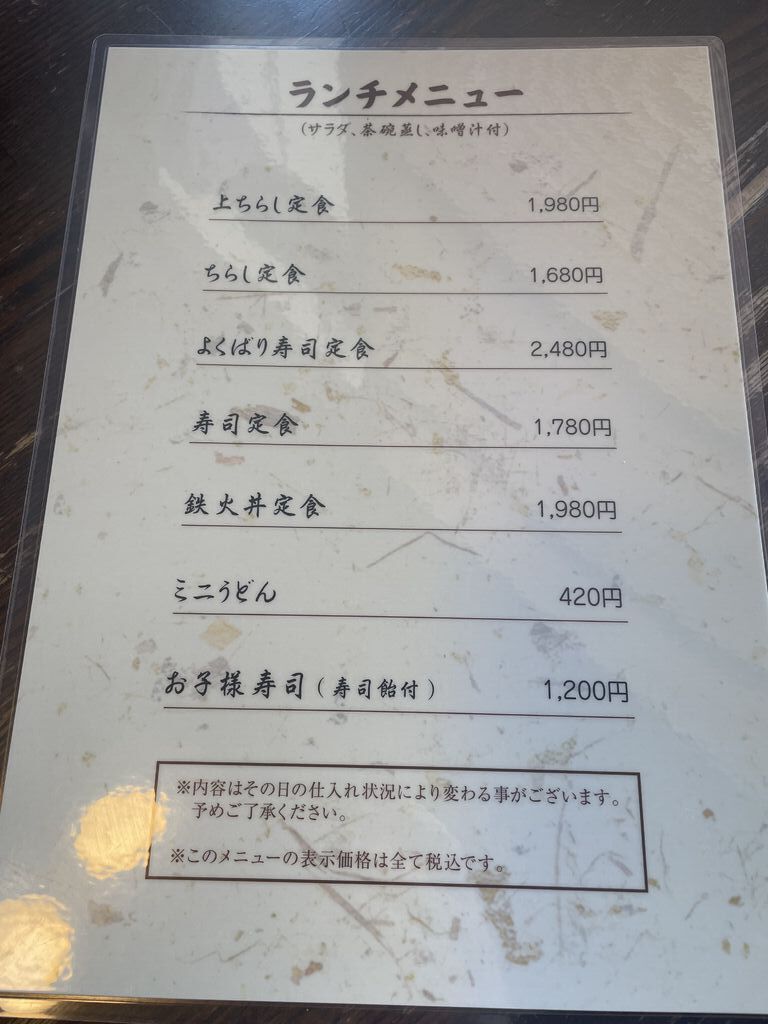 ランチメニュー
(サラダ、茶碗蒸し、味噌汁付)
上ちらし定食 1,980円
ちらし定食 1,680円
よくばり寿司定食 2,480円
寿司定食 1,780円
鉄火丼定食 1,980円
ミニうどん 420円
お子様寿司(寿司飴付) 1,200円
※内容はその日の仕入れ状況により変わる事がございます。
予めご了承ください。
※このメニューの表示価格は全て税込です。